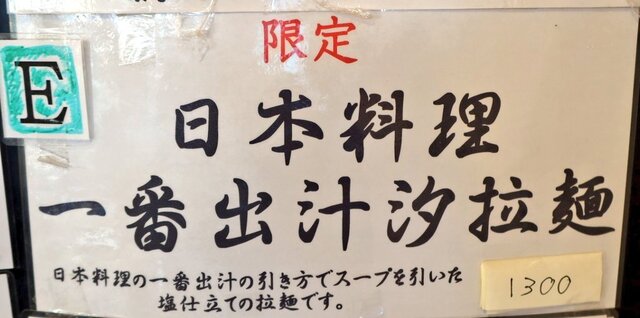 限定
E
日本料理
一番出汁汐拉麺
日本料理の一番出汁の引き方でスープを引いた
塩仕立ての拉麺です。
1300